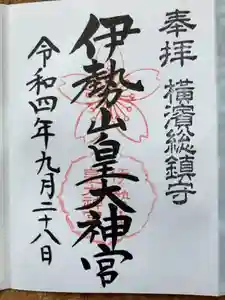 奉拝 横濱総鎮守
伊勢山皇大神宮
令和四年九月二十八日